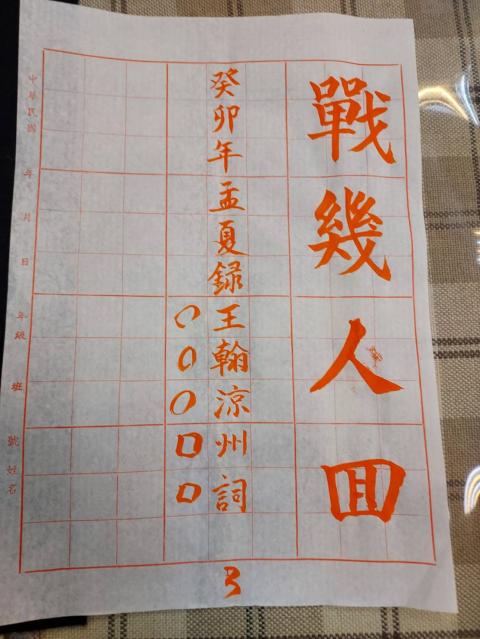 戰幾人囬
癸卯年孟夏録王翰涼州詞
○○○□□
中華民國 年 月 日 年級 班 號 姓名
3